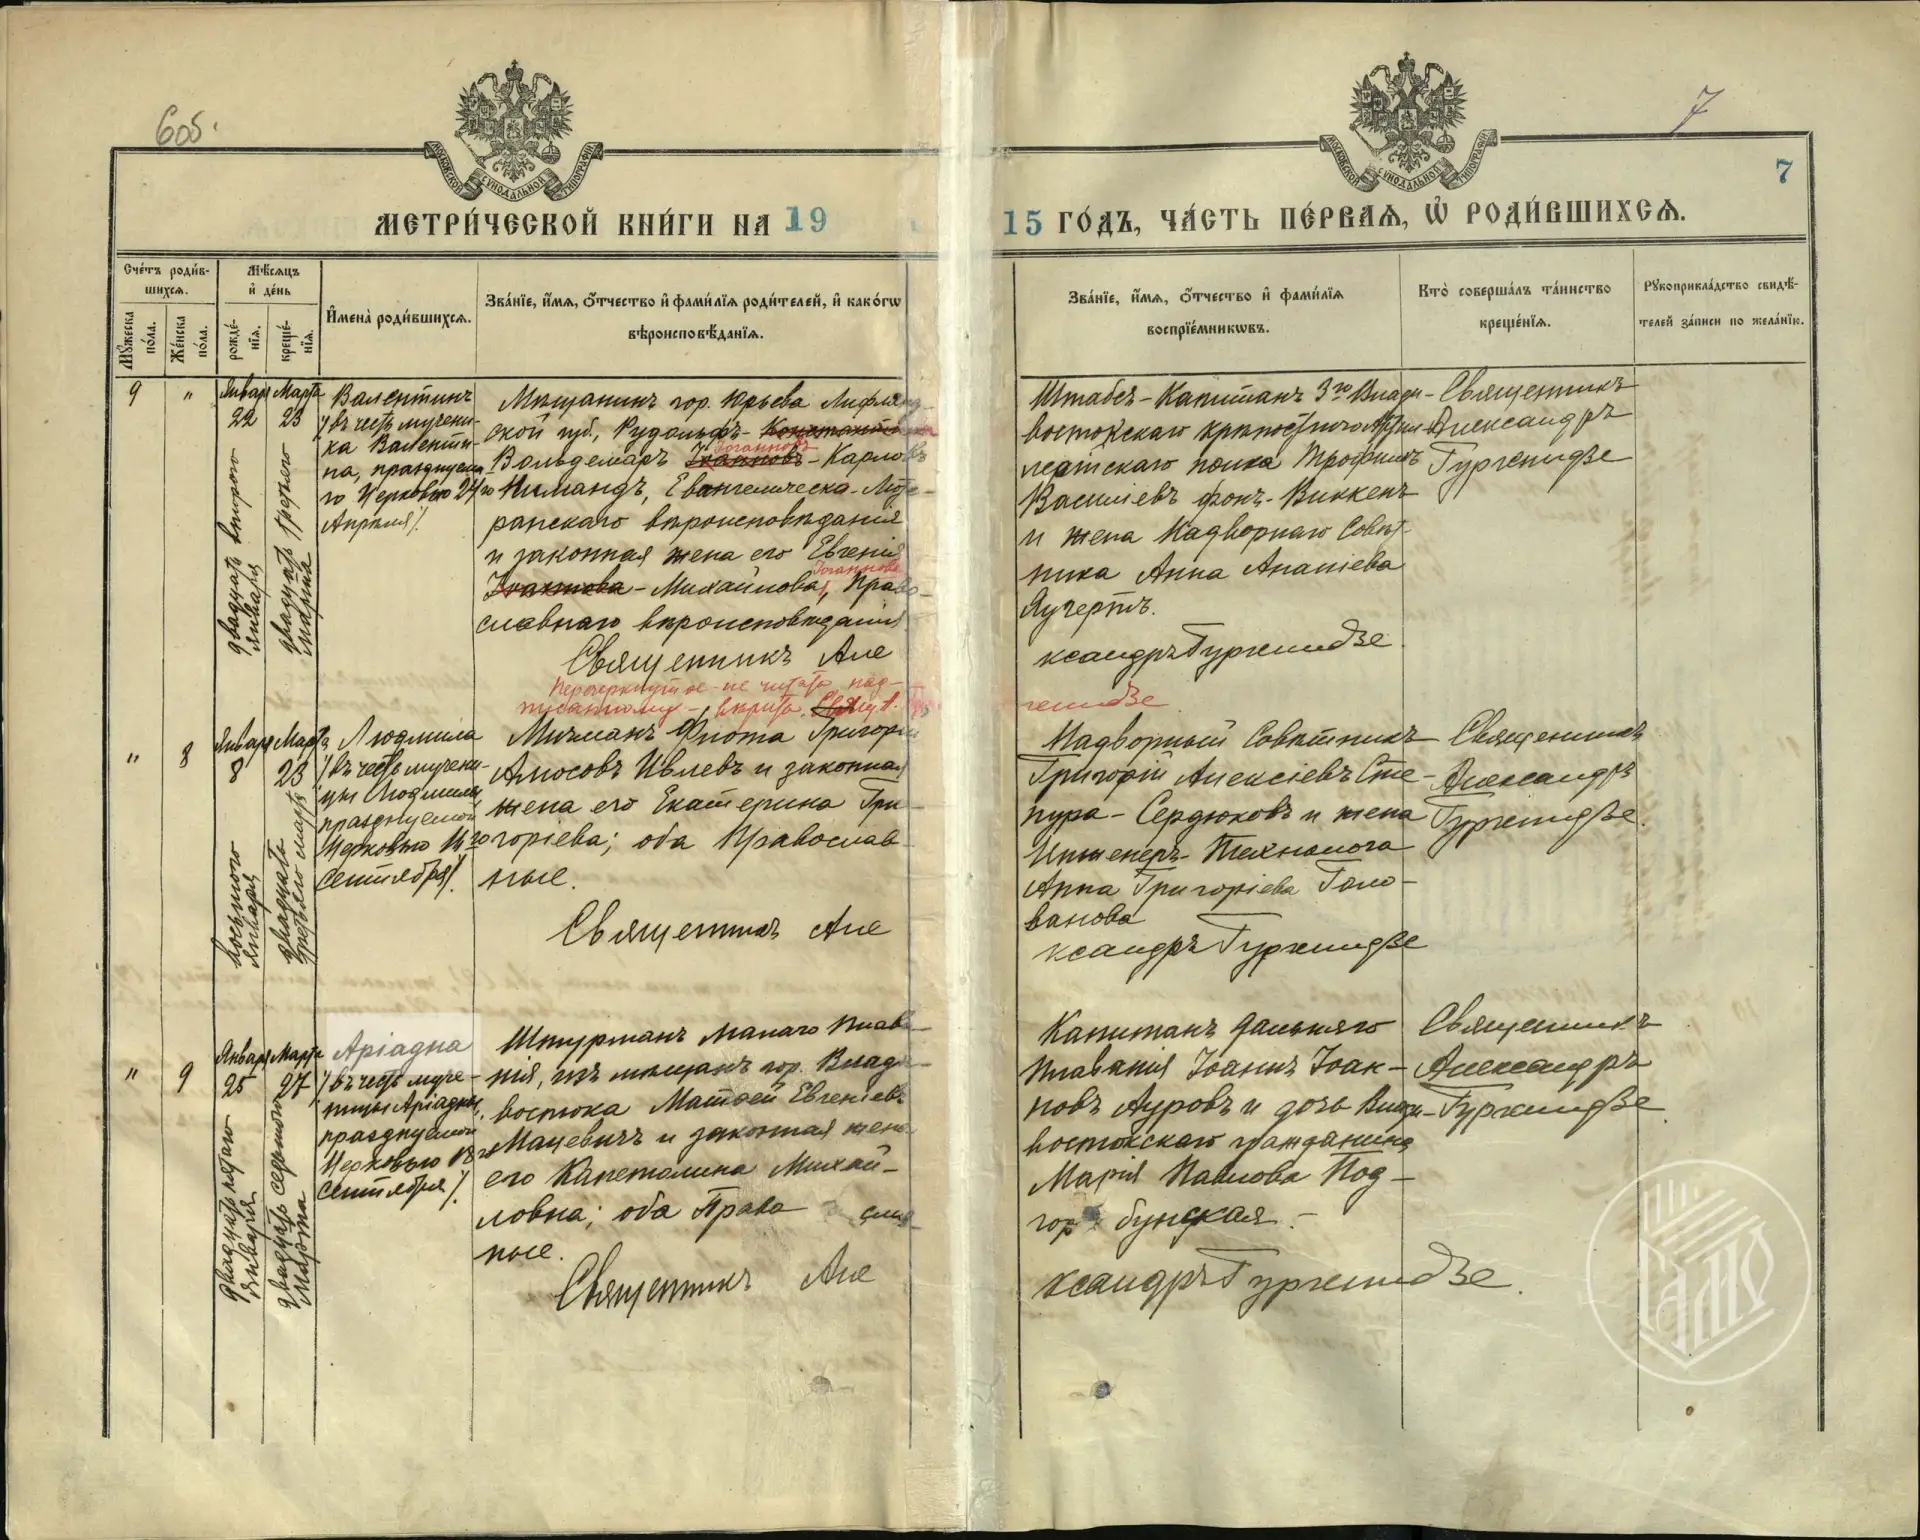 6об.
7
МОСКОВСКОЙ СУНОДАЛЬНОЙ ТИПОГРАФІИ
МОСКОВСКОЙ СУНОДАЛЬНОЙ ТИПОГРАФІИ
7
МЕТРИ́ЧЕСКОЙ КНИ́ГИ НА 19
15 ГО́ДЪ, ЧА́СТЬ ПЕ́РВАѦ, Ѡ РОДИ́ВШИХСѦ.
Сче́тъ роди́в-
шихсѧ.
Мꙋ́жеска по́ла.
Же́нска по́ла.
Мѣ́сѧцъ
и҆ де́нь
рожде́-
нїѧ.
креще́-
нїѧ.
И҆мена̀ роди́вшихсѧ.
Зва́нїе, и҆́мѧ, ѻ҆́тчество и҆ фами́лїѧ роди́телей, и҆ како́гѡ
вѣроисповѣ́данїѧ.
Зва́нїе, и҆́мѧ, ѻ҆́тчество и҆ фами́лїѧ
воспрїе́мникѡвъ.
Кто̀ соверша́лъ та́инство
креще́нїѧ.
Рꙋкоприкла́дство свидѣ́-
телей за́писи по жела́нїю.
9
"
Января
22
двадцать второго
января
Марта
23
двадцать третьяго
марта
Валентинъ
/въ честь мучени-
ка Валенти-
на, празднуема-
го Церковью 24го
Апрѣля/.
Мѣщанинъ гор. Юрьева Лифлянд-
ской губ., Рудольфъ-
Іоанновъ
Вольдемаръ - Карловъ
Нимандъ, Евангелическо-Люте-
ранскаго вѣроисповѣданія
и законная жена его Евгенія
Іоаннова
- Михайлова, Право-
славнаго вѣроисповѣданія
Священникъ Але
Перечеркнутое - не читать, над-
писанному - вѣрить. Свящ. А.
Штабсъ-Капитанъ 3го Влади-
востокскаго крѣпостного Артил-
лерійскаго полка Трофимъ
Василіевъ фонъ-Виккенъ
и жена Надворнаго Совѣт-
ника Анна Ананіева
Яучертъ.
ксандръ Гургенидзе.
генидзе
Священникъ
Александръ
Гургенидзе
"
8
Января
8
восьмого
января
Марта
23
двадцать
третьяго марта
Людмила
/въ честь мучени-
цы Людмилы,
празднуемой
Церковью 16го
сентября/.
Мичманъ Флота Григорій
Амосовъ Ивлевъ и законная
жена его Екатерина Гри-
горіева; оба Православ-
ные.
Священникъ Але
Надворный Совѣтникъ
Григорій Алексіевъ Сте-
пура-Сердюковъ и жена
Инженеръ-Технолога
Анна Григоріева Голо-
ванова
ксандръ Гургенидзе
Священникъ
Александръ
Гургенидзе.
"
9
Января
25
двадцать пятаго
января
Марта
27
двадцать седьмого
марта
Аріадна
/въ честь муче-
ницы Аріадны,
празднуемой
Церковью 18го
сентября/.
Штурманъ малаго плава-
нія, изъ мѣщанъ гор. Влади-
востока Матѳей Евгеніевъ
Мацевичъ и законная жена
его Капетолина Михай-
ловна; оба Право слав-
ные.
Священникъ Але
Капитанъ дальняго
плаванія Іоаннъ Іоак-
новъ Ауровъ и дочь Влади-
востокскаго гражданина
Марія Павлова Под-
гор бунская.-
ксандръ Гургенидзе.
Священникъ
Александръ
Гургенидзе